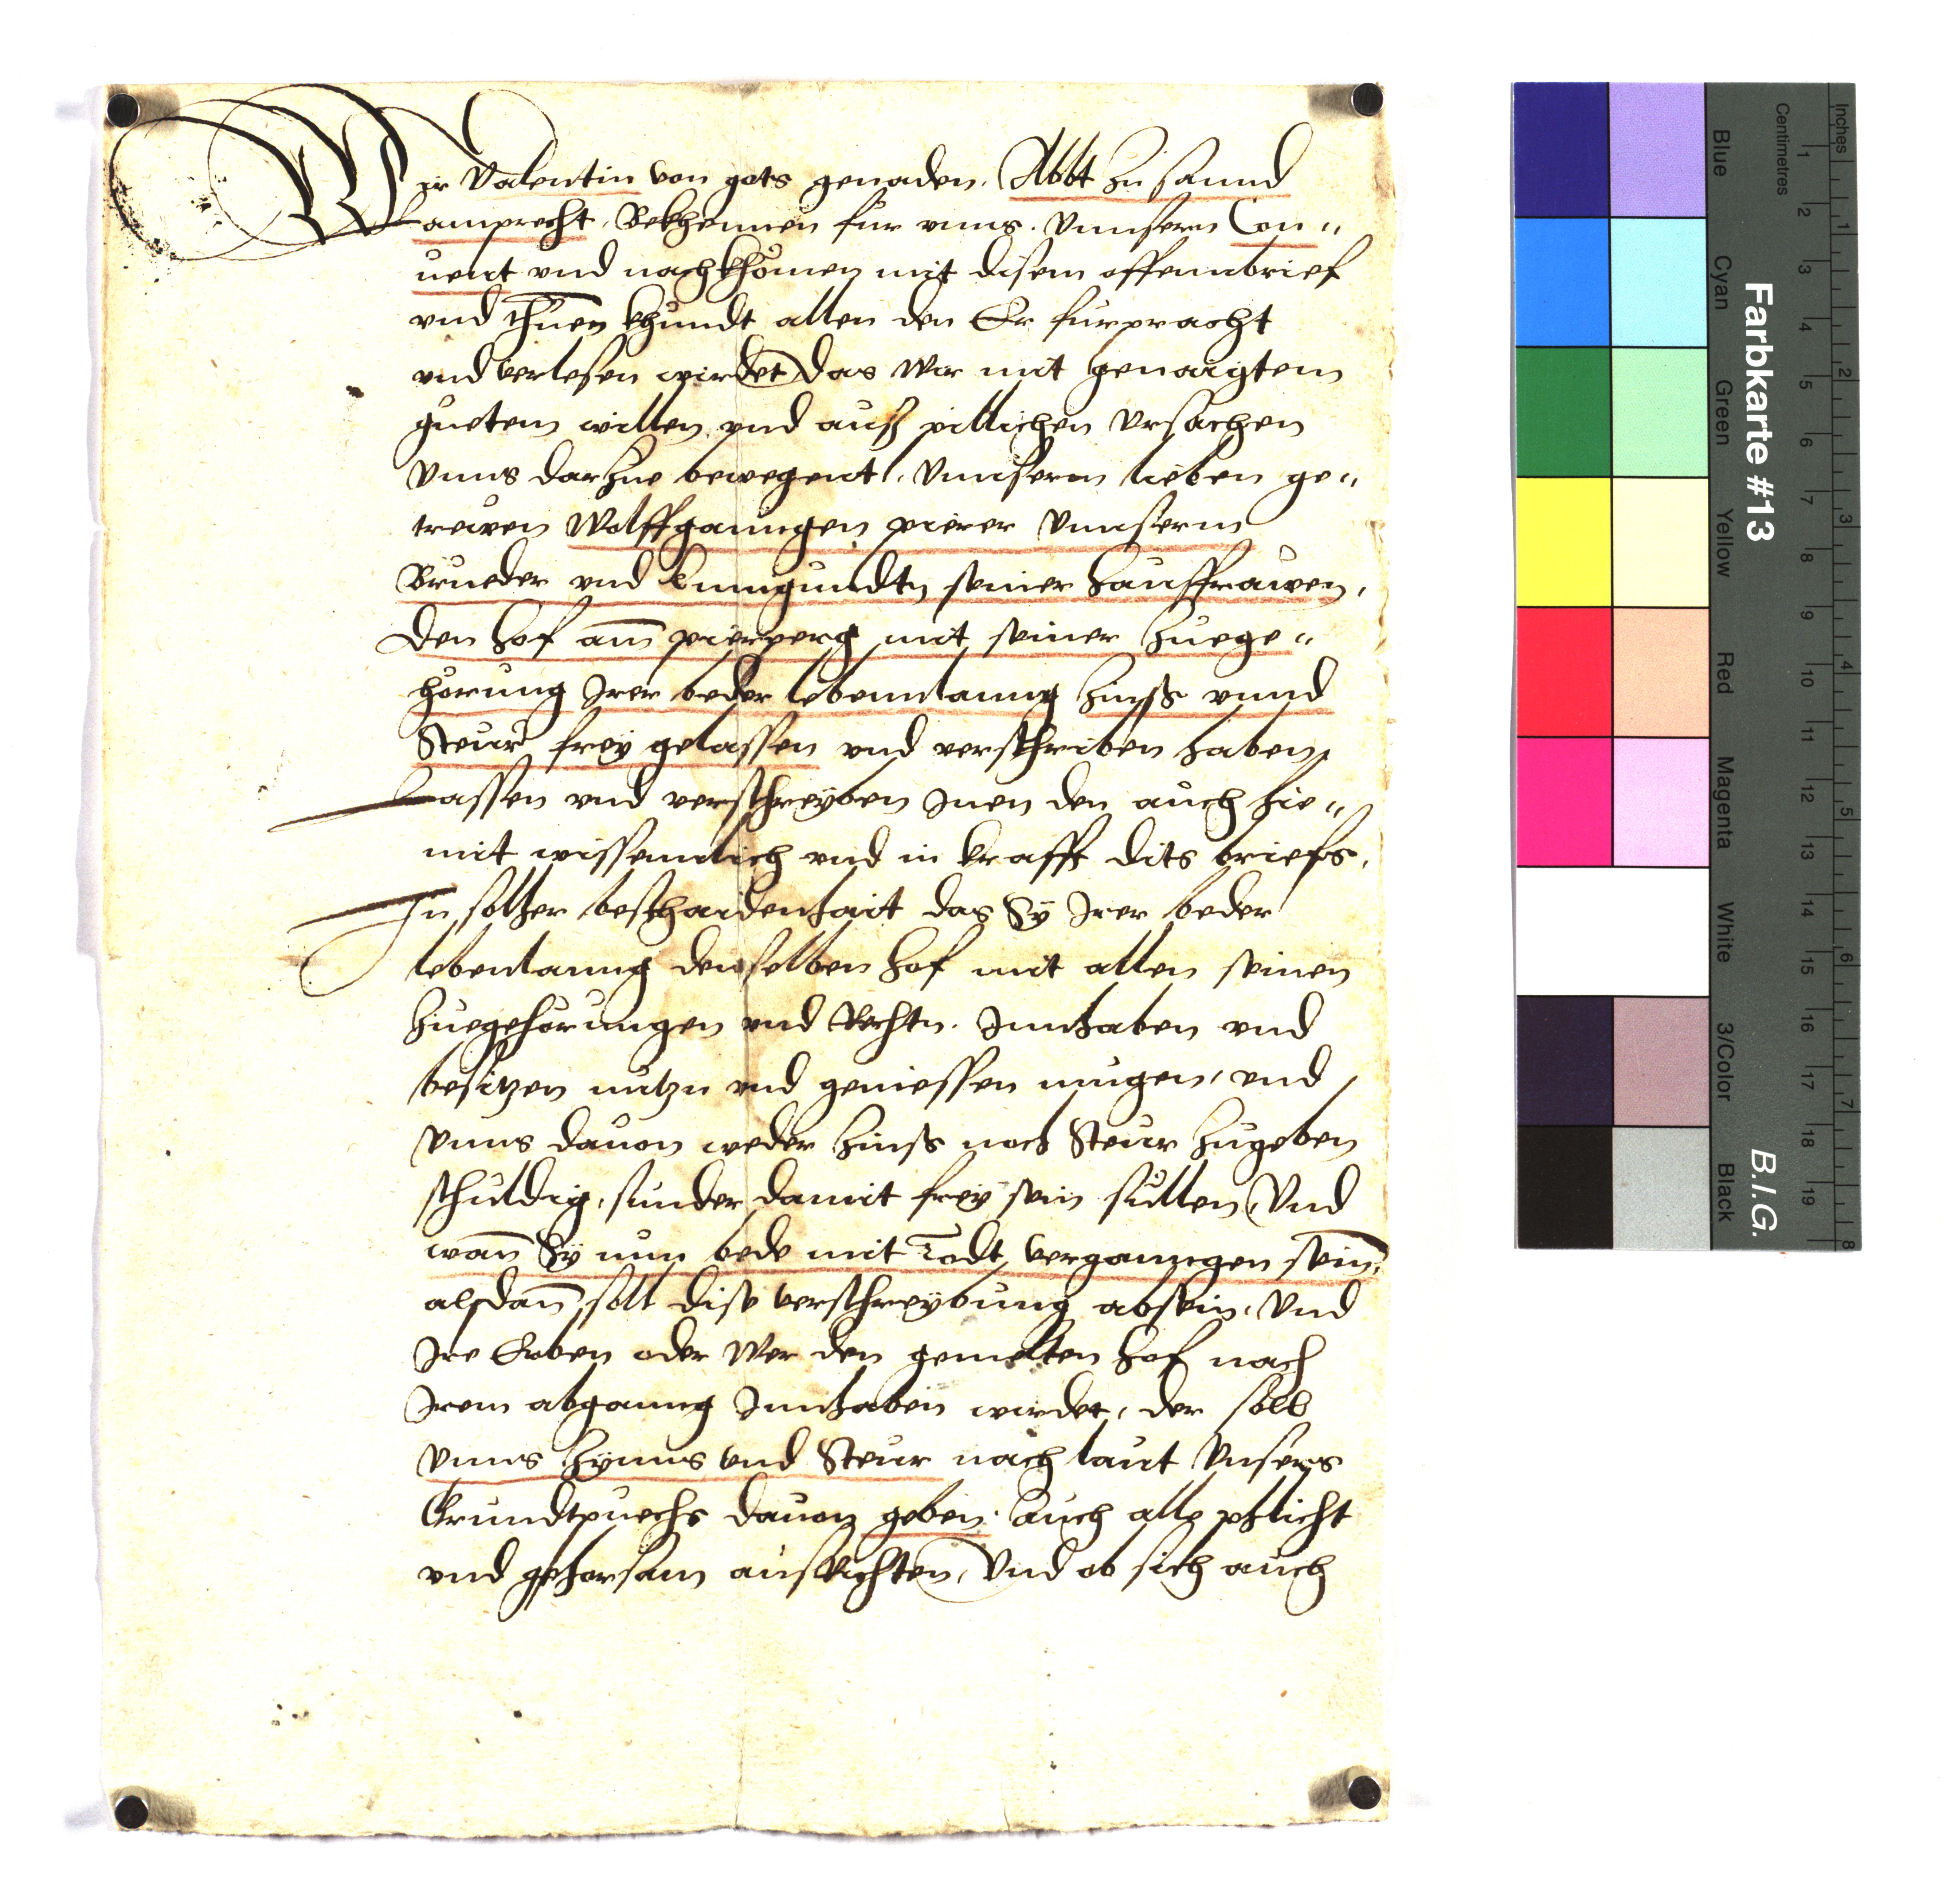 Wir Valentin von gots genaden. Abbt zu sannd
Lamprecht. Bekhennen für vnns. Vnnsern Con„
uent vnd nachkhomen mit disem offennbrief
vnd thuen khundt allen den Er furpracht
vnd verlesen wirdet, das Wir mit genaigtem
guetem willen vnd auß pillichen Vrsachen
Vnns darzue bewegent. Vnnserm lieben ge„
trewen Wolffganngen pierer Vnnserm
Brueder vnd kunigundtn seiner hauffrawen,
Den hof am̄ pierperg mit seiner zuege„
horung Irer beder lebennlanng zinß vnnd
Steur frey gelassen vnd verschriben haben
Lassen vnd verschreyben Inen den auch hie„
mit wissenntlich vnd in krafft dits briefs,
In solher beschaidenhait das Sÿ Irer beder
lebenlanng denselben hof mit allen seinen
zuegehörungen vnd Rechtn. Innhaben vnd
besitzen nutzn vnd geniessen mugen, vnd
Vnns dauon weder zinß noch Steur zugeben
schuldig, sunder damit frey sein sullen, Vnd
wan̄ Sÿ nun bede mit Todt verganngen sein,
alsdan̄ soll dise verschreybung absein, Vnd
Ire Erben oder Wer den gemelten hof nach
Irem abganng Innhaben wirdet, der soll
Vnns Zynns vnd Steur nach laut Vnsers
Grundtpuechs dauon geben. Auch alle phlicht
vnd gehorsam ausRichten, Vnd ob sich auch
Farbkarte #13
B.I.G.
Inches
Centimetres
1 2 3 4 5 6 7 8 9 10 11 12 13 14 15 16 17 18 19
1 2 3 4 5 6 7 8
Blue
Cyan
Green
Yellow
Red
Magenta
White
3/Color
Black